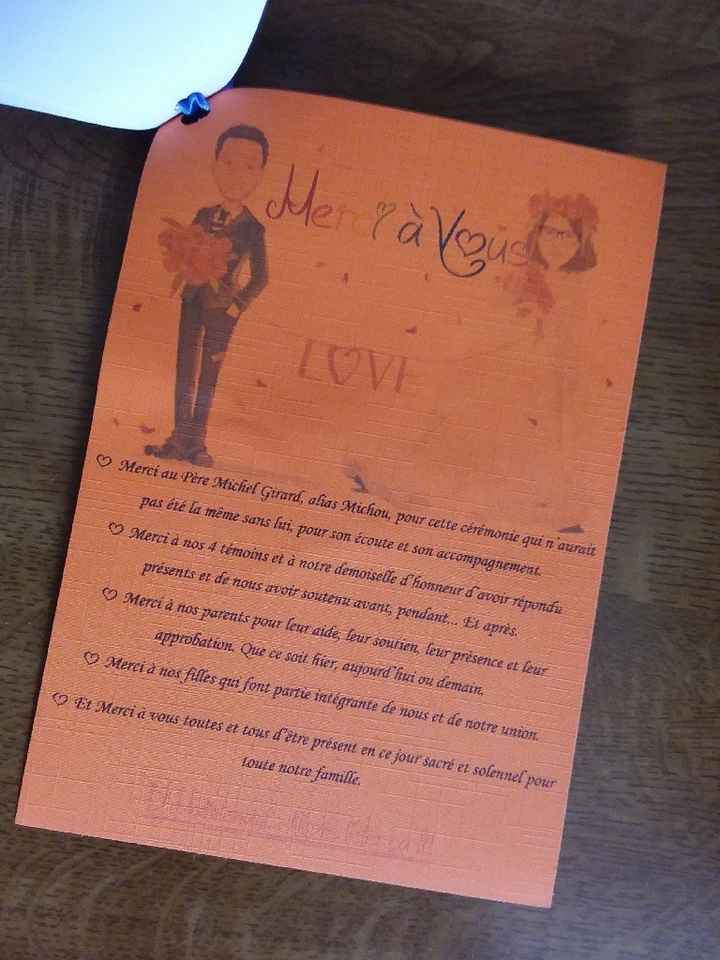 Merci à Vous
LOVE
Merci au Père Michel Girard, alias Michou, pour cette cérémonie qui n'aurait
pas été la même sans lui, pour son écoute et son accompagnement.
Merci à nos 4 témoins et à notre demoiselle d'honneur d'avoir répondu
présents et de nous avoir soutenu avant, pendant... Et après.
Merci à nos parents pour leur aide, leur soutien, leur présence et leur
approbation. Que ce soit hier, aujourd'hui ou demain.
Merci à nos filles qui font partie intégrante de nous et de notre union.
Et Merci à vous toutes et tous d'être présent en ce jour sacré et solennel pour
toute notre famille.